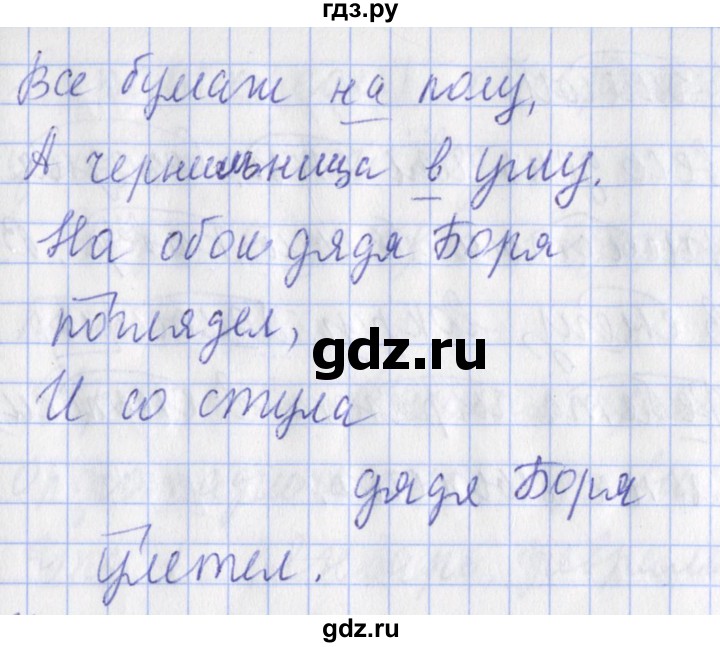 гдз.ру
Все бумаж на полу,
А чернильница в углу.
На обои дядя Боря
поглядел,
gdz.ru
И со стула
дядя Боря
улетел.
gdz.ru